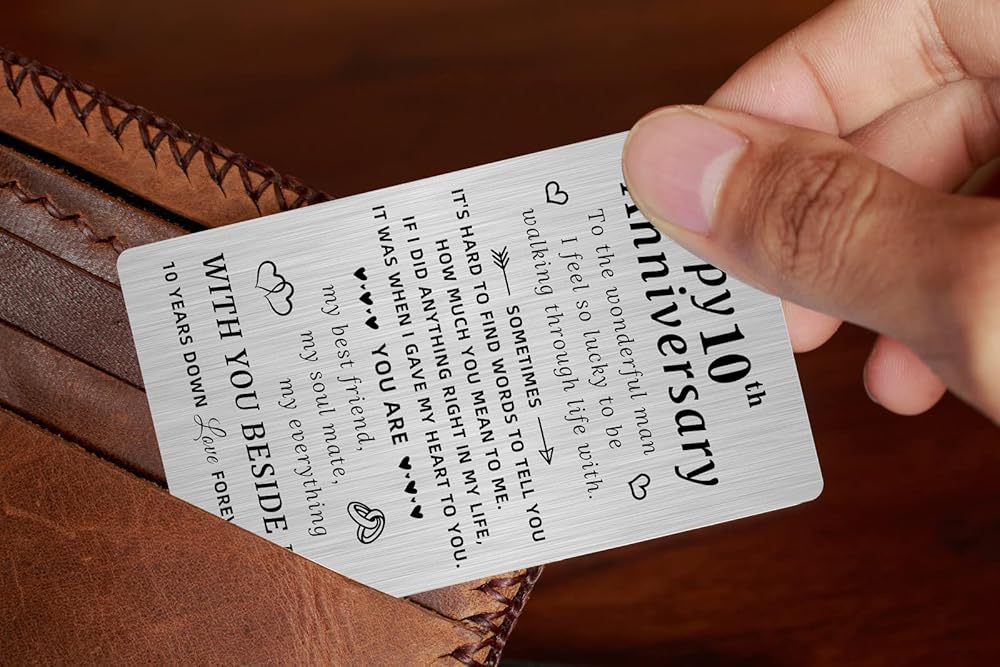 py 10th
Anniversary
To the wonderful man
I feel so lucky to be
walking through life with.
SOMETIMES
IT'S HARD TO FIND WORDS TO TELL YOU
HOW MUCH YOU MEAN TO ME.
IF I DID ANYTHING RIGHT IN MY LIFE,
IT WAS WHEN I GAVE MY HEART TO YOU.
YOU ARE
my best friend,
my soul mate,
my everything
WITH YOU BESIDE
10 YEARS DOWN Love FOREV